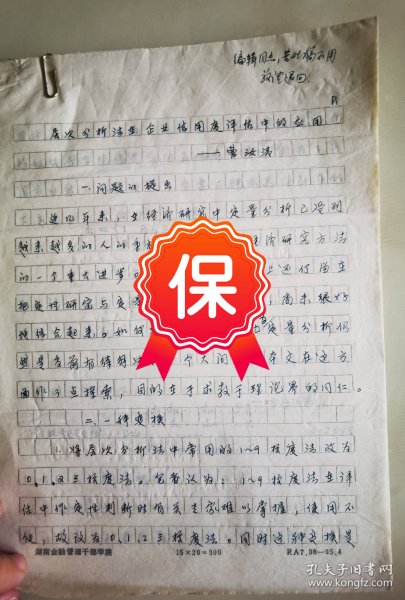 编辑同志,若此稿不用
请退回
层次分析法在企业信用度评估中的应用
——曹
一、问题的提出
近几年来,在经济研究中定量分析已受到
越来越多的人的 经济研究方法
的一个重大进步 上还停留在
规定性研究与定量 尚未很好
地结合起来。如何 定量分析仍
然是 个大问 本文在这方
面作了点探索,目的在于求教于理论界的同仁。
二、一种变换
1、将层次分析法中常用的1~9标度法改为
0,1,2三标度法。笔者认为:1~9标度法在评
估中作定性判断时有关专家难以掌握,使用不
便,故改为0,1,2三标度法。同时这种变换是
保
湖南金融管理干部学院
15×20=300
RA7.08—95.4
孔夫子旧书网
www.kongfz.com